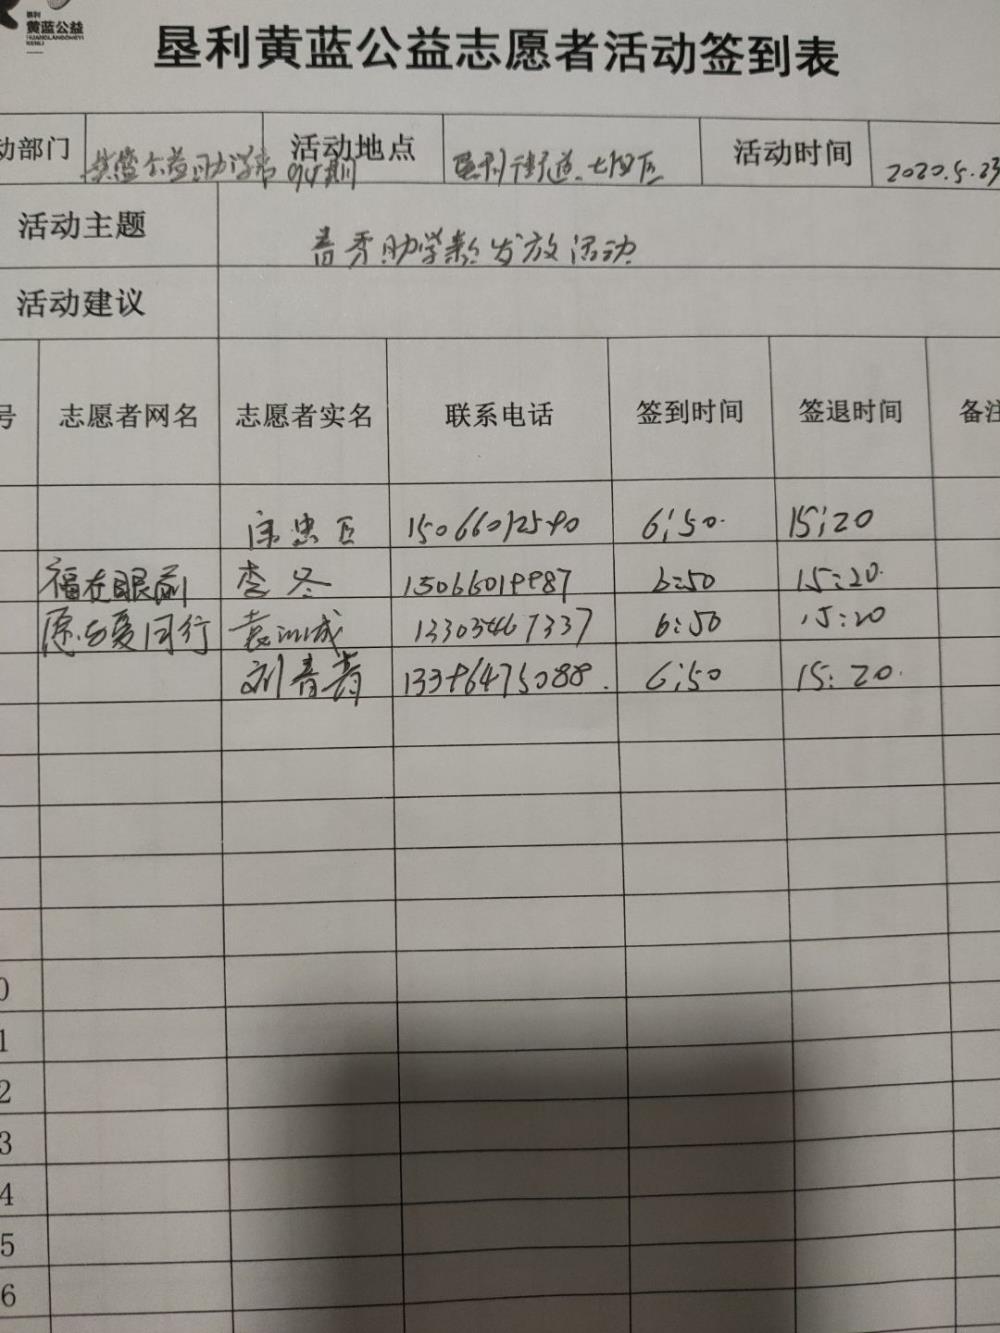 垦利
黄蓝公益
HUANGLANGONGYI
KENLI
垦利黄蓝公益志愿者活动签到表
动部门 黄蓝公益助学 活动地点 垦利街道 活动时间 2020.5.23
活动主题 春秀助学款发放活动
活动建议
号 志愿者网名 志愿者实名 联系电话 签到时间 签退时间 备注
6:50 15:20
福在眼前 李冬 6:50 15:20
愿与爱同行 6:50 15:20
刘青青 13396475088 6:50 15:20
0
1
2
3
4
5
6